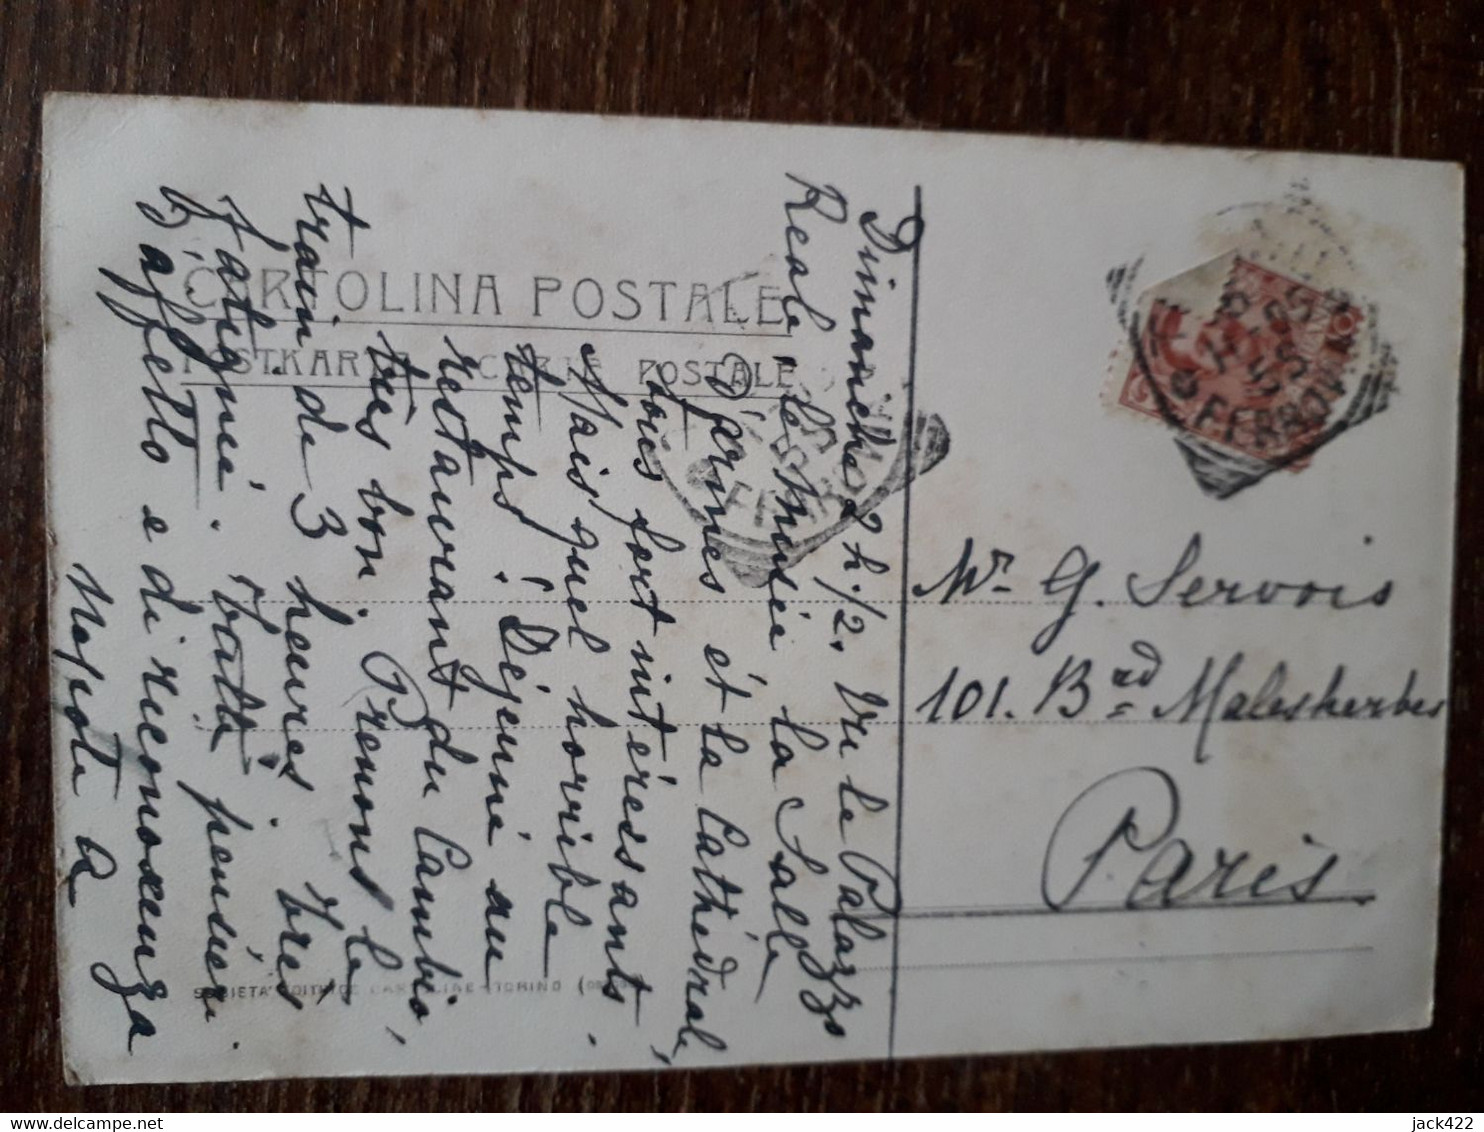 CARTOLINA POSTALE
POSTKARTE CARTE POSTALE
Dimanche 2 h. 1/2. Vu le Palazzo
Reale, le Musée la Salle
d'armes et la Cathédrale,
fort intéressants.
Mais quel horrible
temps! Déjeuné au
restaurant du Cambio,
très bon. Prenons le
train de 3 heures. Très
fatigué. Tanti pensieri
d'affetto e di riconoscenza
SOCIETÀ EDITRICE CARTOLINE - TORINO
Mr G. Servois
101. Brd Malesherbes
Paris
FERROVIA
FERROVIA
jack422